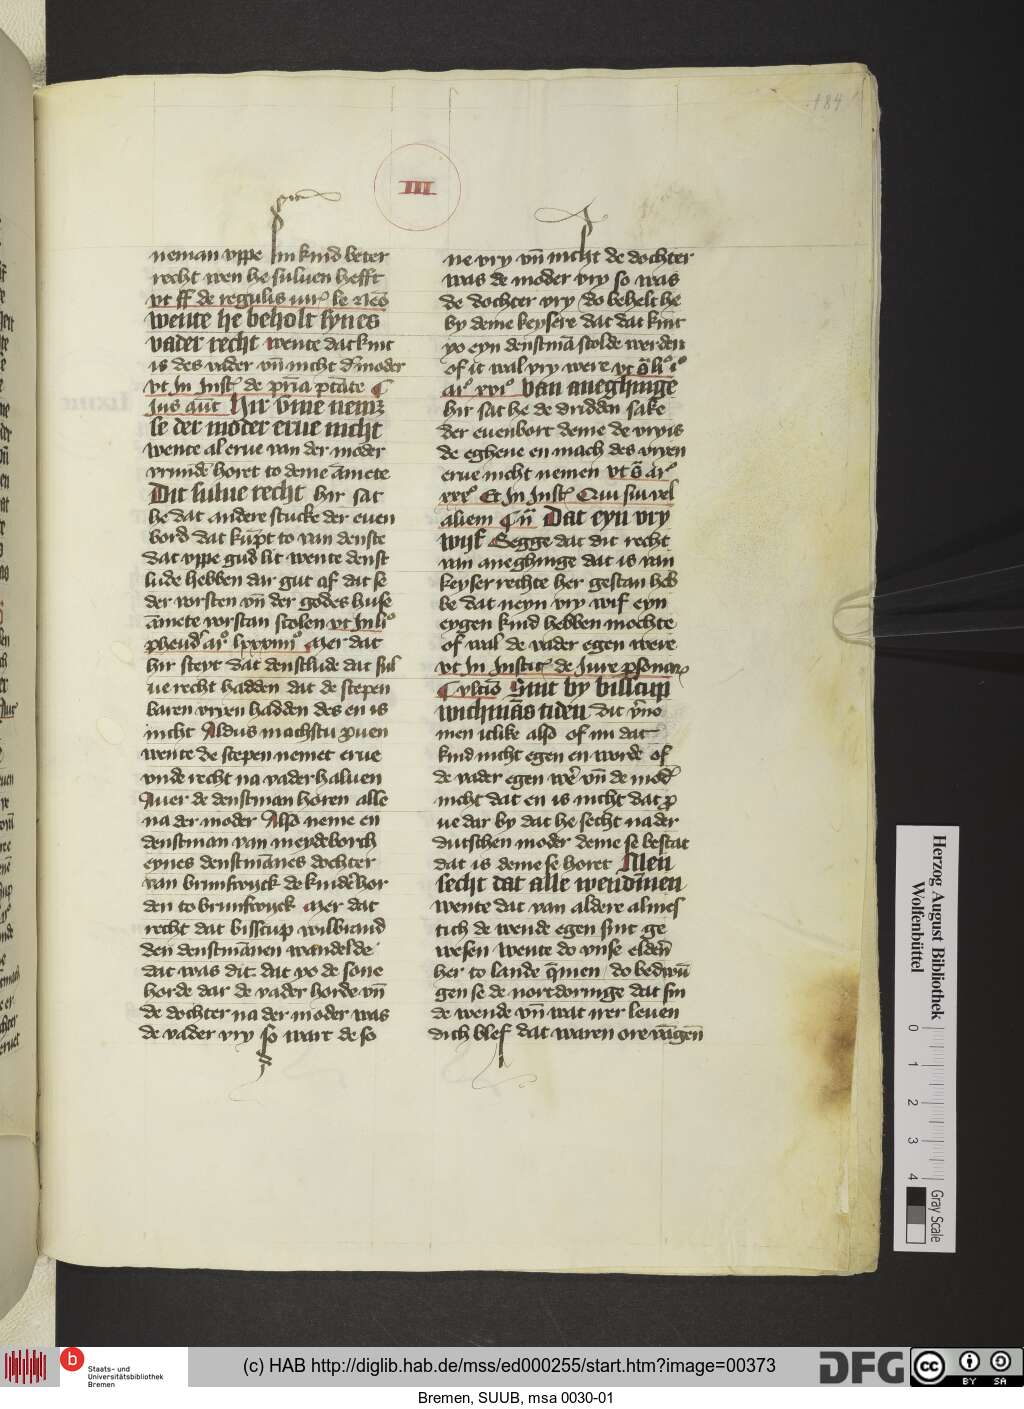 184
III
neman vppe sin kind beter
recht wen he suluen hefft
vt ff de regulis iur̄ le Nēo
wente he beholt synes
vader recht wente dat kint
is des vader vn̄ nicht d' moder
vt In Inst' de pr̄ia p̄tāte ¶
Ius aūt Hir v̄me nem
se der moder erue nicht
wente al erue van der moder
vrunde horet to deme āmete
Dit sulue recht hir sat
he dat andere stucke der euen
bord dat kūpt to van denste
dat vppe gud lit wente denst
lude hebben dar gut of dat se
der vorsten vn̄ der godes huse
āmete vorstan scolen vt In li°
pheud' ar° lxxviii° Mer dat
hir steyt dat denstlude dat sul
ue recht hadden dat de scepen
baren vryen hadden des en is
nicht Aldus machstu prouen
wente de scepen nemet erue
vnde recht na vader haluen
Auer de denstman horen alle
na der moder Also neme en
denstman van meydeborch
eynes denstmānes dochter
van brunswyck de kindere hor
den to brunswyck Mer dat
recht dat bisscup wilbrand
den denstmānen wandelde
dat was dit dat yo de sone
horde dar de vader horde vn̄
de dochter na der moder was
de vader vry so wart de so
ne vry vn̄ nicht de dochter
was de moder vry so was
de dochter vry do behelt he
by deme keysere dat dat kint
yo eyn denstmā scolde werden
of it wal vry were vt
ar° xvi° van aneghinge
hir sat he de dridden sake
der euenbort deme de vryis
de egheue en mach des vryen
erue nicht nemen vt ar°
xxx° Et In Inst' Qui sui vel
aliem ¶ Dat eyn vry
wyf Segge dat dit recht
van aneghinge dat is van
keyser rechte her gestan heb
be dat neyn vry wif eyn
eygen kind hebben mochte
of wal de vader egen were
vt In Institut' de Iure p̄sonar̄
¶ vltīo Sint by bisscup
wichmās tiden dit v̄no
men iclike also of nu dat
kind nicht egen en worde of
de vader egen wer' vn̄ de mod'
nicht dat en is nicht dat p
ue dar by dat he secht na der
dutschen moder deme se bestat
dat is deme se horet Men
secht dat alle wendīnen
wente dat van aldere almes
tich de wende egen sint ge
wesen wente do vnse elder̄
her to lande q̄men do bedwū
gen se de nortdoringe dat sin
de wende vn̄ wat irer leuen
dich blef dat waren ore vāgen̄
Herzog August Bibliothek
Wolfenbüttel
0
1
2
3
4
Gray Scale
b
Staats- und
Universitätsbibliothek
Bremen
(c) HAB http://diglib.hab.de/mss/ed000255/start.htm?image=00373
DFG
cc
BY SA
Bremen, SUUB, msa 0030-01